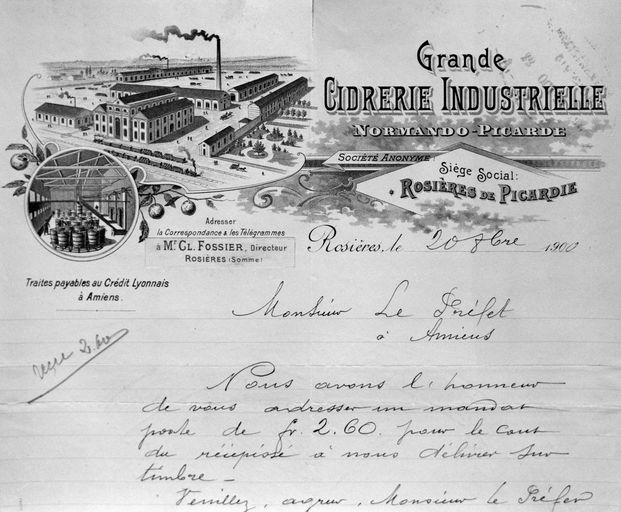 Grande
CIDRERIE INDUSTRIELLE
NORMANDO-PICARDE
SOCIÉTÉ ANONYME
Siège Social:
ROSIÈRES DE PICARDIE
Adresser
la Correspondance & les Télégrammes
à Mr. CL. FOSSIER, Directeur
ROSIÈRES (SOMME)
Traites payables au Crédit Lyonnais
à Amiens.
Rosières, le 20 8bre 1900
Monsieur Le Préfet
à Amiens
2.60
Nous avons l'honneur
de vous adresser un mandat
poste de fr. 2.60. pour le cout
du récépissé à nous délivrer sur
timbre _
Veuillez, agréer, Monsieur le Préfet